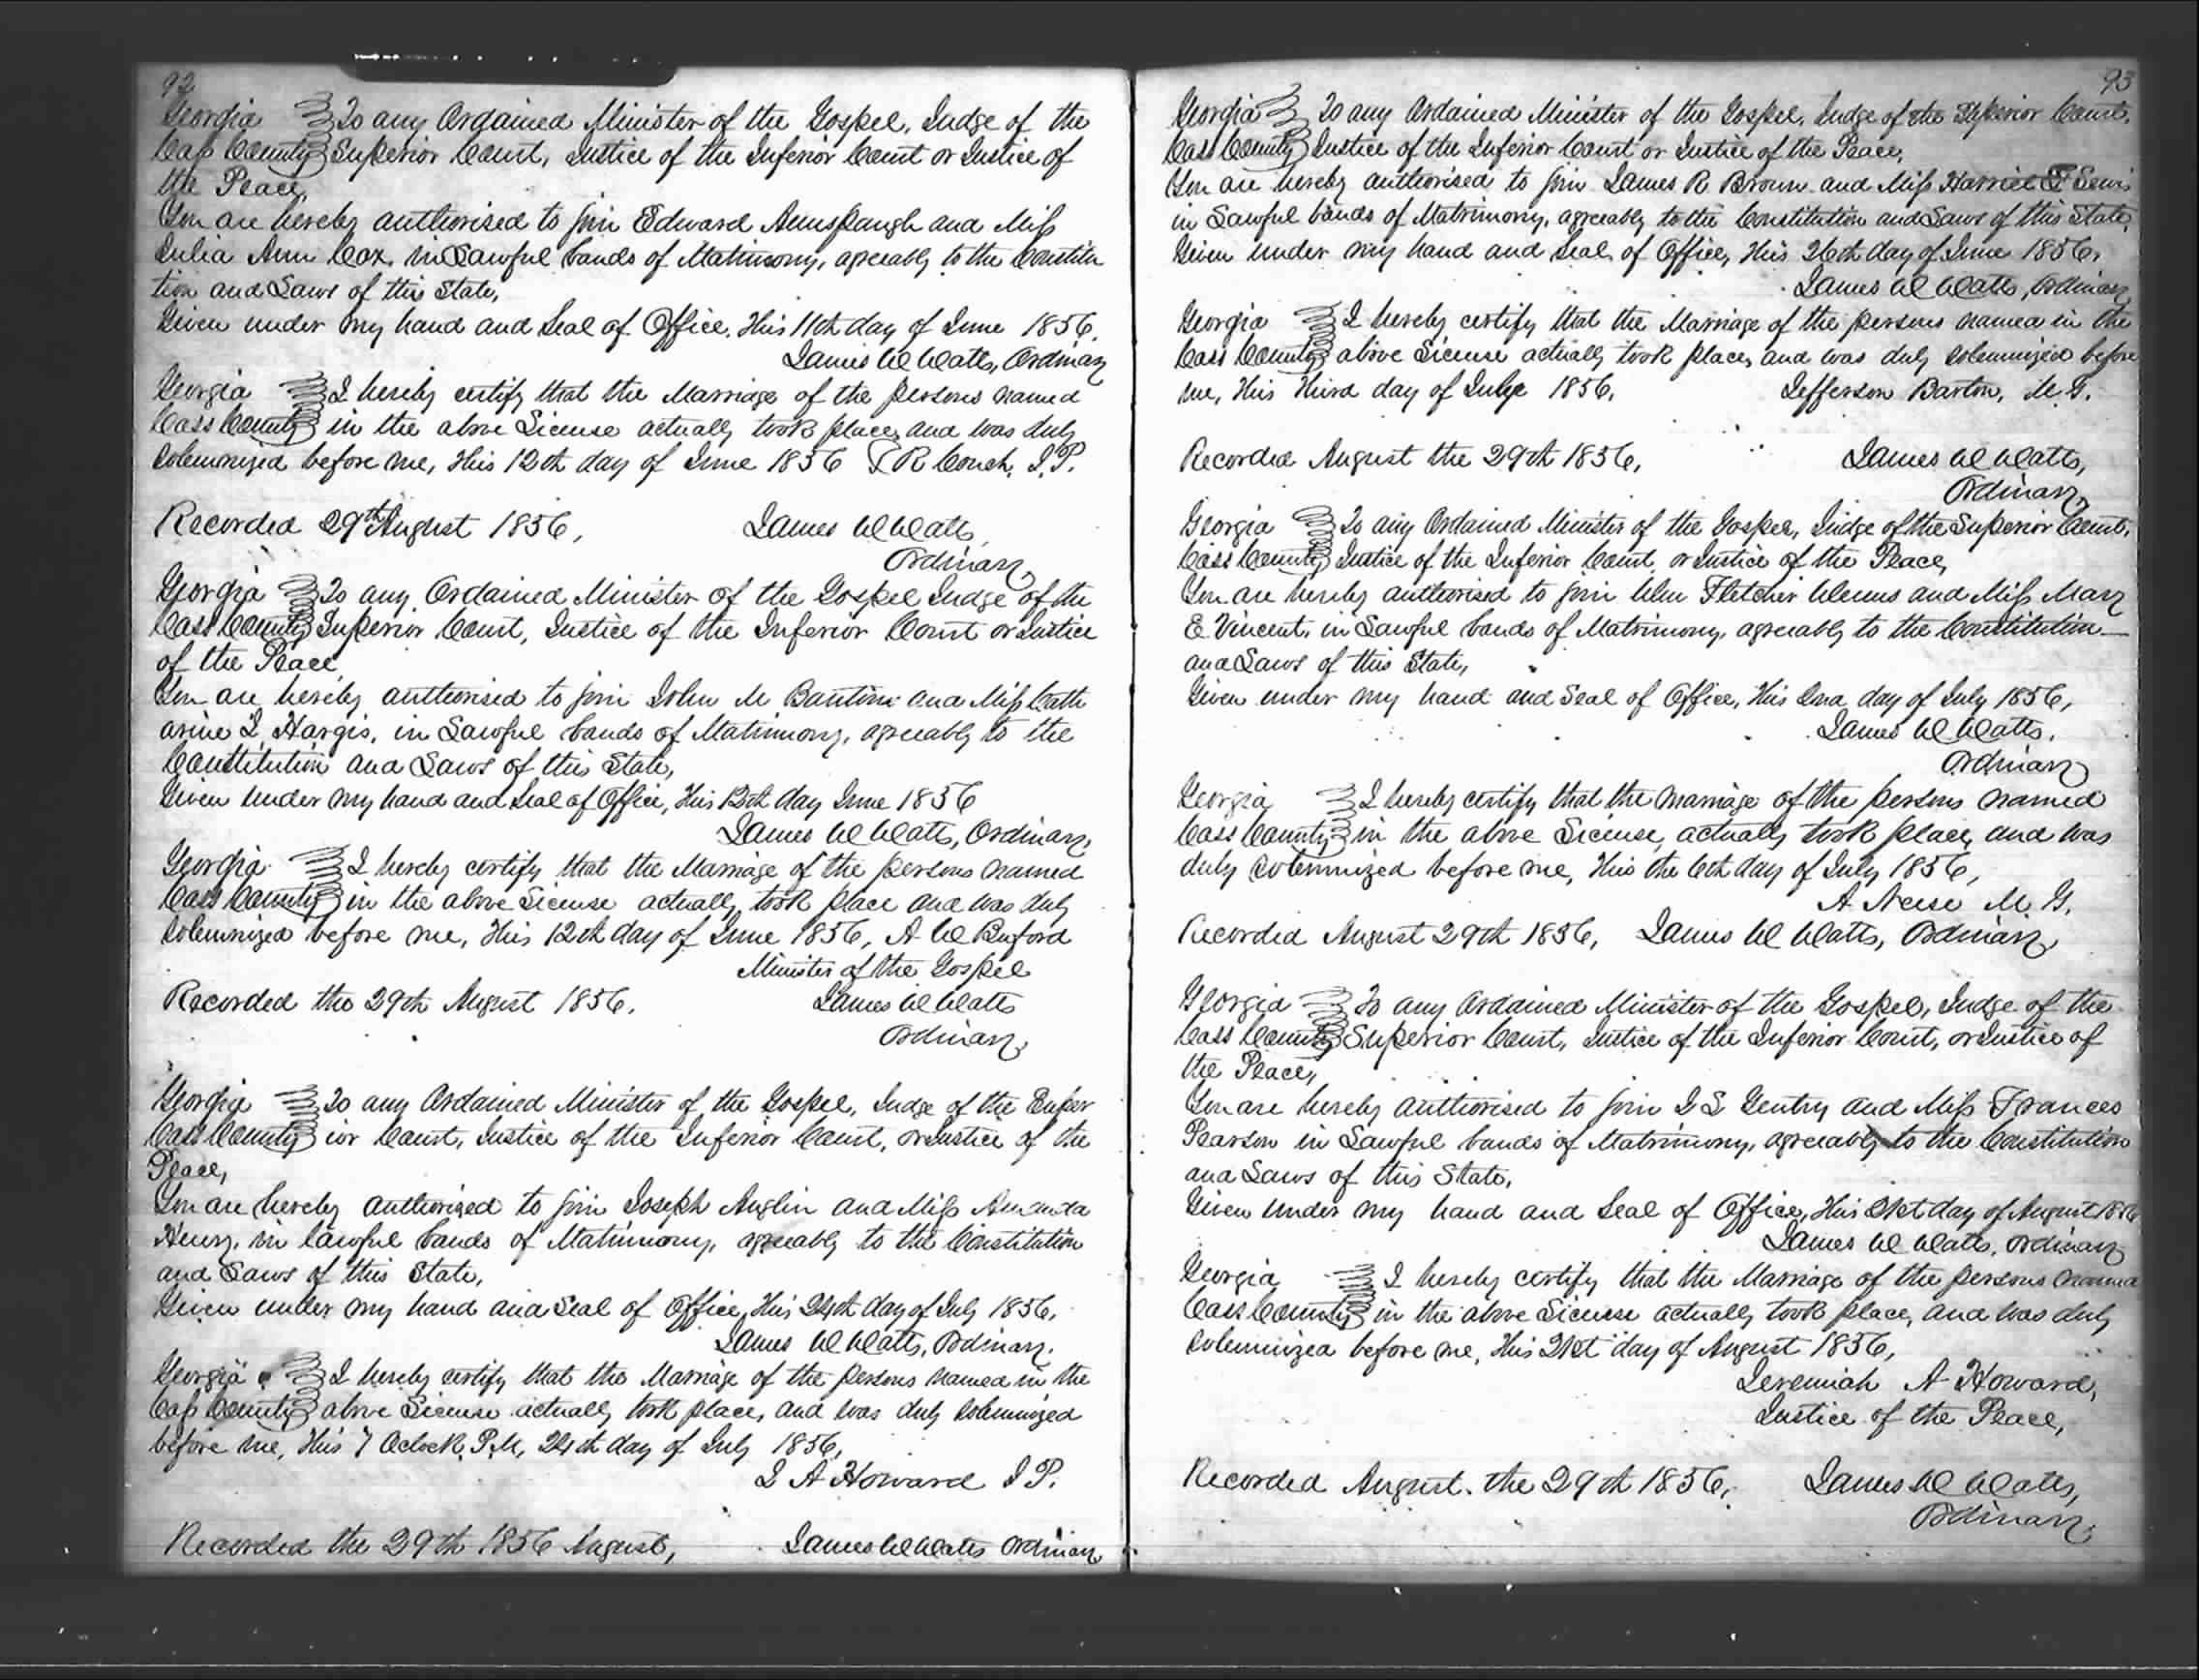 92
Georgia To any Ordained Minister of the Gospel, Judge of the
Cass County Superior Court, Justice of the Inferior Court or Justice of
the Peace,
You are hereby authorised to join Edward Aunspaugh and Miss
Julia Ann Cox, in Lawful bands of Matrimony, agreeably to the Constitu
tion and Laws of this State,
Given under my hand and Seal of Office, this 11th day of June 1856.
James W Watts, Ordinary
Georgia I hereby certify that the Marriage of the persons named
Cass County in the above License actually took place, and was duly
Solemnized before me, this 12th day of June 1856 R Couch, J.P.
Recorded 29th August 1856, James W Watts,
Ordinary,
Georgia To any Ordained Minister of the Gospel Judge of the
Cass County Superior Court, Justice of the Inferior Court or Justice
of the Peace,
You are hereby authorised to join John M and Miss Cath
arine Hargis, in Lawful bands of Matrimony, agreeably to the
Constitution and Laws of this State,
Given under my hand and Seal of Office, this 12th day June 1856
James W Watts, Ordinary,
Georgia I hereby certify that the Marriage of the persons named
Cass County in the above License actually took place and was duly
Solemnized before me, this 12th day of June 1856, A W Buford
Minister of the Gospel
Recorded the 29th August 1856. James W Watts
Ordinary,
Georgia To any Ordained Minister of the Gospel, Judge of the Super
Cass County ior Court, Justice of the Inferior Court, or Justice of the
Peace,
You are hereby authorized to join Joseph Anglin and Miss Amanda
Henry, in lawful bands of Matrimony, agreeably to the Constitution
and Laws of this State,
Given under my hand and Seal of Office, this 24th day of July 1856,
James W Watts, Ordinary.
Georgia I hereby certify that the Marriage of the persons named in the
Cass County above License actually took place, and was duly Solemnized
before me, this 7 Oclock, P.M, 24th day of July 1856,
J A Howard J P.
Recorded the 29th 1856 August, James W Watts Ordinary
93
Georgia To any Ordained Minister of the Gospel, Judge of the Superior Court,
Cass County Justice of the Inferior Court or Justice of the Peace,
You are hereby authorised to join James R Brown and Miss Harriet F Lewis
in Lawful bands of Matrimony, agreeably to the Constitution and Laws of this State,
Given under my hand and Seal of Office, this 26th day of June 1856,
James W Watts, Ordinary
Georgia I hereby certify that the Marriage of the persons named in the
Cass County above License actually took place, and was duly Solemnized before
me, this third day of July 1856, Jefferson Barton, M.G.
Recorded August the 29th 1856, James W Watts,
Ordinary,
Georgia To any Ordained Minister of the Gospel, Judge of the Superior Court,
Cass County Justice of the Inferior Court, or Justice of the Peace,
You are hereby authorised to join Wm Fletcher Weems and Miss Mary
E Vincent, in Lawful bands of Matrimony, agreeably to the Constitution
and Laws of this State,
Given under my hand and Seal of Office, this 2nd day of July 1856,
James W Watts,
Ordinary
Georgia I hereby certify that the Marriage of the persons named
Cass County in the above License, actually took place, and was
duly Solemnized before me, this the 6th day of July 1856,
A Neese M. G.
Recorded August 29th 1856, James W Watts, Ordinary,
Georgia To any Ordained Minister of the Gospel, Judge of the
Cass County Superior Court, Justice of the Inferior Court, or Justice of
the Peace,
You are hereby authorised to join J S Gentry and Miss Frances
Pearson in Lawful bands of Matrimony, agreeably to the Constitution
and Laws of this State,
Given under my hand and Seal of Office, this 21st day of August 1856
James W Watts, Ordinary
Georgia I hereby certify that the Marriage of the persons named
Cass County in the above License actually took place, and was duly
Solemnized before me, this 21st day of August 1856,
Jeremiah A Howard,
Justice of the Peace,
Recorded August. the 29th 1856, James W Watts,
Ordinary,